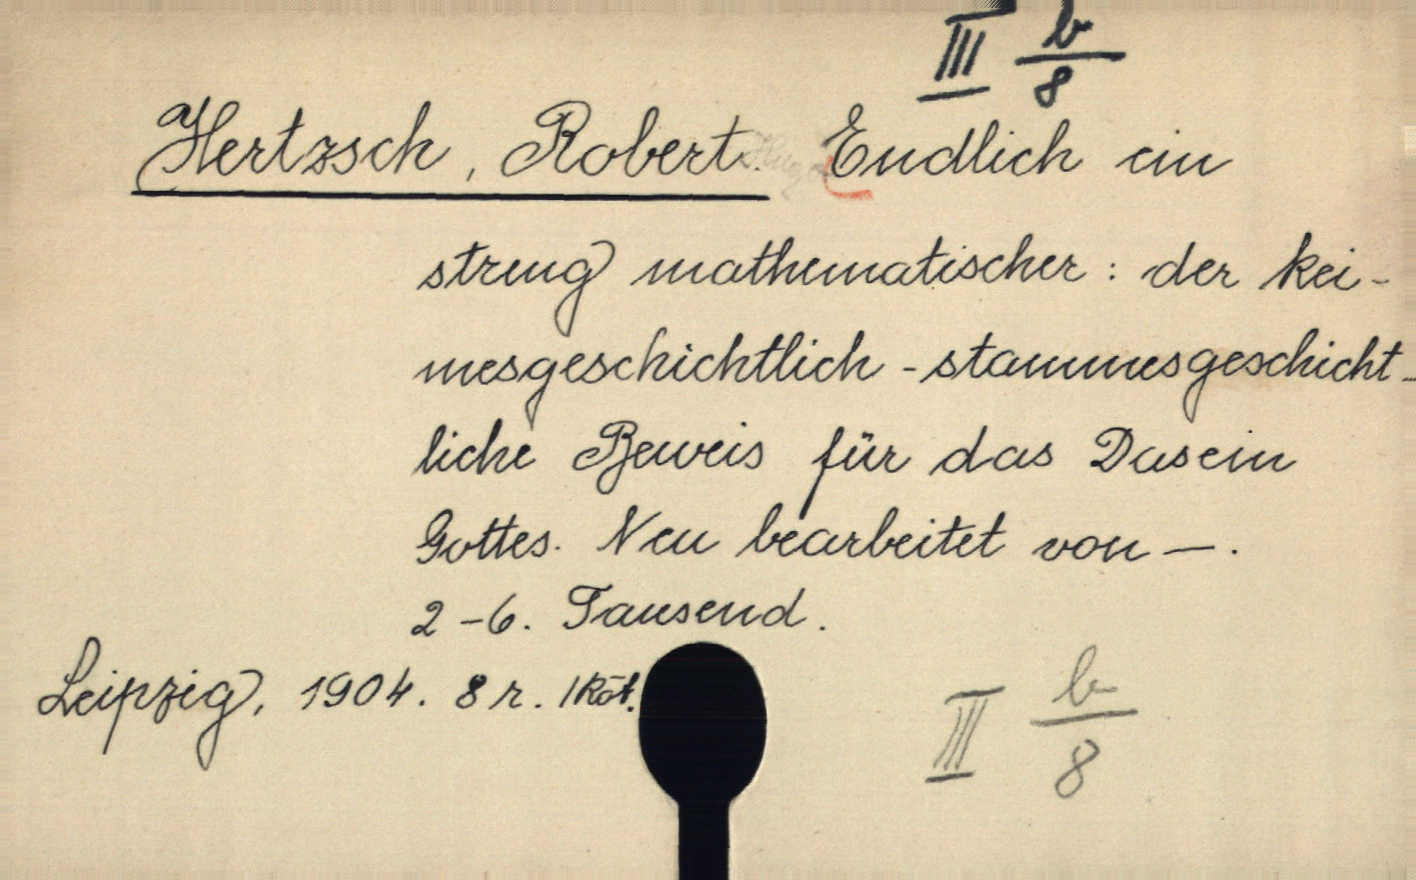 III b/8
Hertzsch, Robert. Hugo Endlich ein
streng mathematischer: der kei-
mesgeschichtlich-stammesgeschicht-
liche Beweis für das Dasein
Gottes. Neu bearbeitet von —.
2-6. Tausend.
Leipzig, 1904. 8r. 1 Köt.
III b/8